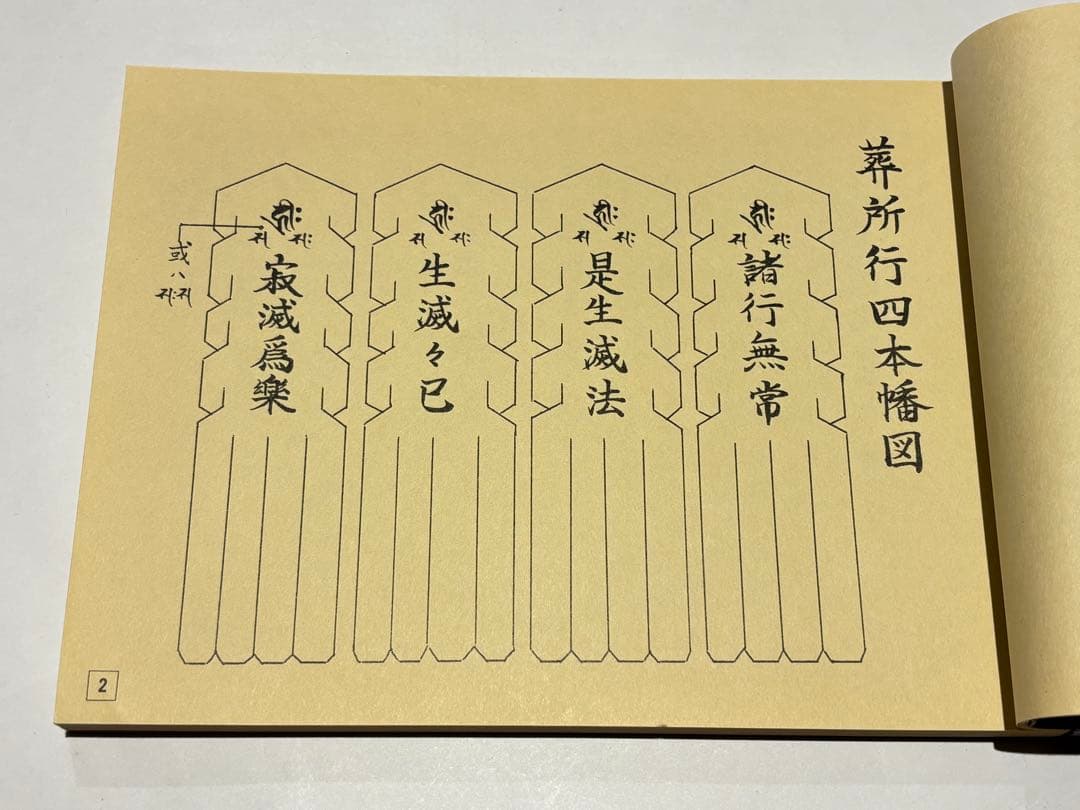 葬所行四本幡図
諸行無常
是生滅法
生滅々已
寂滅爲樂
或ハ
2